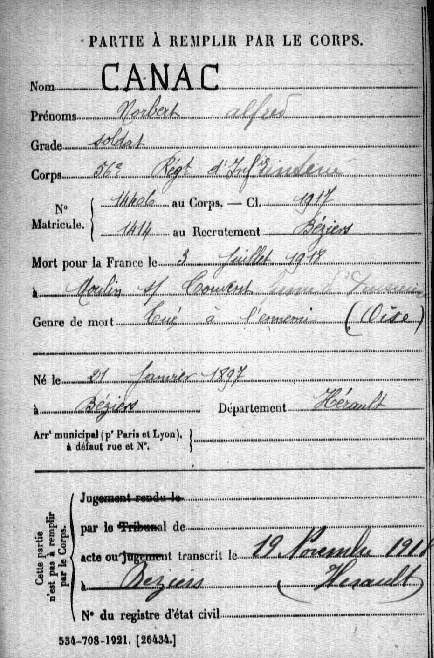 PARTIE À REMPLIR PAR LE CORPS.
Nom CANAC
Prénoms Norbert alfred
Grade soldat
Corps 56e Régt d'Infanterie
N° Matricule. au Corps. — Cl. 1917
1414 au Recrutement Béziers
Mort pour la France le 3 Juillet
à Moulin s/
Genre de mort Tué à l'ennemi (Oise)
Né le 21 Janvier 1897
à Béziers Département Hérault
Arrt municipal (pr Paris et Lyon),
à défaut rue et N°.
Cette partie n'est pas à remplir par le Corps.
Jugement rendu le
par le Tribunal de
acte ou jugement transcrit le 19 Novembre 1918
à Beziers (Herault)
N° du registre d'état civil
534-708-1921. [26434.]